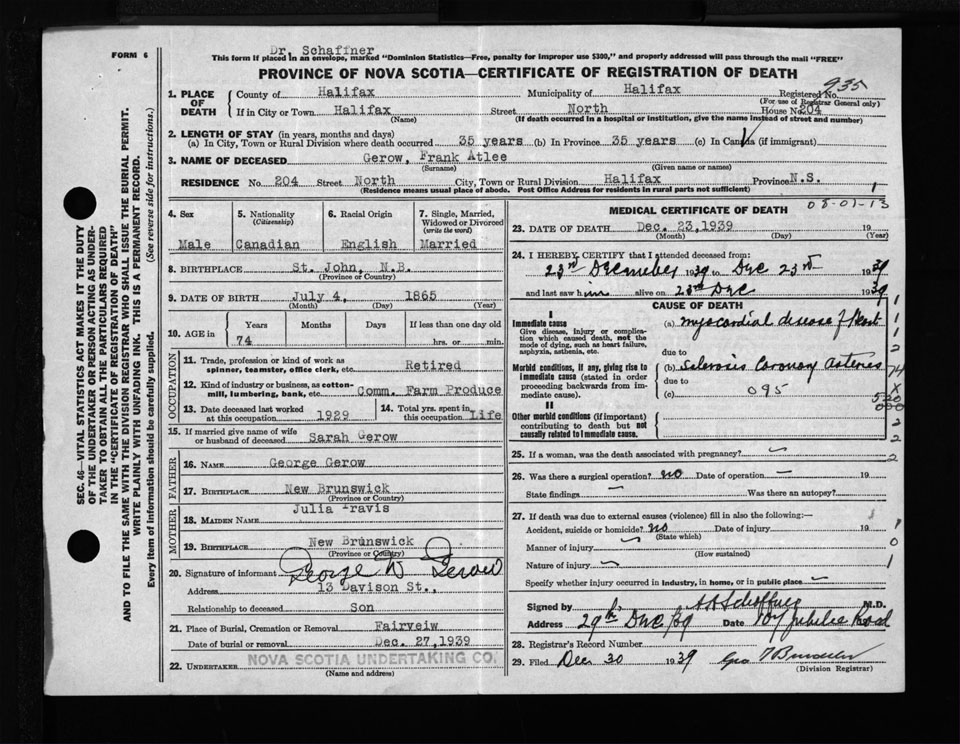 FORM 6
Dr. Schaffner
This form if placed in an envelope, marked "Dominion Statistics—Free, penalty for improper use $300," and properly addressed will pass through the mail "FREE"
PROVINCE OF NOVA SCOTIA—CERTIFICATE OF REGISTRATION OF DEATH
935
1. PLACE OF DEATH
County of Halifax Municipality of Halifax Registered No.
(For use of Registrar General only)
If in City or Town Halifax Street North House No. 204
(Name) (If death occurred in a hospital or institution, give the name instead of street and number)
2. LENGTH OF STAY (in years, months and days)
(a) In City, Town or Rural Division where death occurred 35 years (b) In Province 35 years (c) In Canada (if immigrant)
3. NAME OF DECEASED Gerow, Frank Atlee
(Surname) (Given name or names)
RESIDENCE No. 204 Street North City, Town or Rural Division Halifax Province N.S.
(Residence means usual place of abode. Post Office Address for residents in rural parts not sufficient)
4. Sex
Male
5. Nationality
(Citizenship)
Canadian
6. Racial Origin
English
7. Single, Married, Widowed or Divorced
(write the word)
Married
8. BIRTHPLACE St. John, N.B.
(Province or Country)
9. DATE OF BIRTH July 4, 1865
(Month) (Day) (Year)
10. AGE in
Years Months Days If less than one day old
74 hrs. or min.
OCCUPATION
11. Trade, profession or kind of work as
spinner, teamster, office clerk, etc. Retired
12. Kind of industry or business, as cotton-
mill, lumbering, bank, etc. Comm. Farm Produce
13. Date deceased last worked
at this occupation 1929
14. Total yrs. spent in
this occupation Life
15. If married give name of wife
or husband of deceased Sarah Gerow
FATHER
16. NAME George Gerow
17. BIRTHPLACE New Brunswick
(Province or Country)
MOTHER
18. MAIDEN NAME Julia Travis
19. BIRTHPLACE New Brunswick
(Province or Country)
20. Signature of informant George W Gerow
Address 13 Davison St.,
Relationship to deceased Son
21. Place of Burial, Cremation or Removal Fairveiw
Date of burial or removal Dec. 27,1939
22. UNDERTAKER NOVA SCOTIA UNDERTAKING CO.
(Name and address)
MEDICAL CERTIFICATE OF DEATH
08-01-13
23. DATE OF DEATH Dec. 23,1939 19
(Month) (Day) (Year)
24. I HEREBY CERTIFY that I attended deceased from:
23rd December 1939 to Dec 23rd 1939
and last saw him alive on 23rd Dec 1939
CAUSE OF DEATH
I
Immediate cause
Give disease, injury or complication which caused death, not the mode of dying, such as heart failure, asphyxia, asthenia, etc.
(a) Myocardial disease of Heart
due to
Morbid conditions, if any, giving rise to immediate cause (stated in order proceeding backwards from immediate cause).
(b) Sclerosis Coronary Arteries
due to
(c) 095
II
Other morbid conditions (if important) contributing to death but not causally related to immediate cause.
25. If a woman, was the death associated with pregnancy?
26. Was there a surgical operation? no Date of operation
State findings Was there an autopsy?
27. If death was due to external causes (violence) fill in also the following:—
Accident, suicide or homicide? no Date of injury 19
(State which)
Manner of injury
(How sustained)
Nature of injury
Specify whether injury occurred in industry, in home, or in public place
Signed by M.D.
Address 29th Dec/39 Date 107 Jubilee Road
28. Registrar's Record Number
29. Filed Dec 30 1939
(Division Registrar)
SEC. 46—VITAL STATISTICS ACT MAKES IT THE DUTY
OF THE UNDERTAKER OR PERSON ACTING AS UNDER-
TAKER TO OBTAIN ALL THE PARTICULARS REQUIRED
IN THE "CERTIFICATE OF REGISTRATION OF DEATH"
AND TO FILE THE SAME WITH THE DIVISION REGISTRAR WHO SHALL ISSUE THE BURIAL PERMIT.
WRITE PLAINLY WITH UNFADING INK. THIS IS A PERMANENT RECORD.
Every item of information should be carefully supplied. (See reverse side for instructions.)